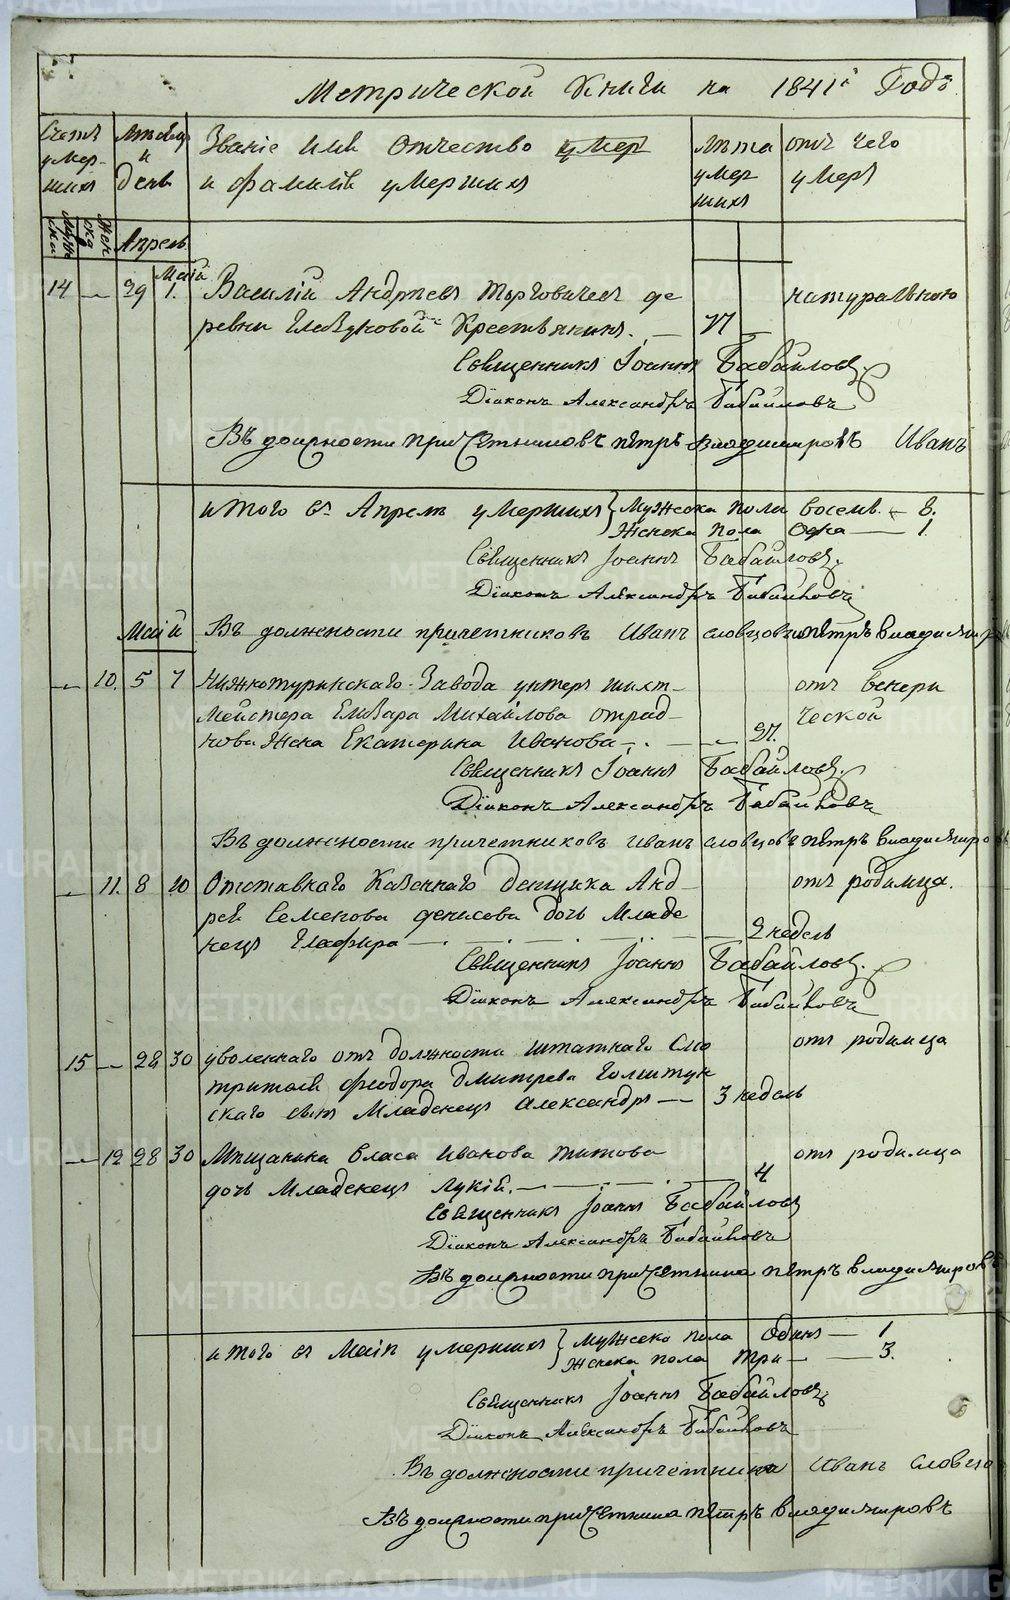 Метрической Книги на 1841й Годъ.
Счетъ умер-шихъ
Мѣсяцъ и день
Званіе Имя Отчество умер
и фамилія умершихъ
Лѣта умер шихъ
отъ чего умеръ
Мужска
Женска
Апрель
Маій
14 — 29 1. Василій Андреевъ де натуральною
ревни Крестьянинъ. — 71 —
Священникъ Іоаннъ Бабайловъ.
Діаконъ Александръ Бабайловъ
Въ должности причетниковъ Петръ Владимировъ Иванъ
итого въ Апрелѣ умершихъ Мужска пола восемь. — 8.
Женска пола одна — 1.
Священникъ Іоаннъ Бабайловъ.
Діаконъ Александръ Бабайловъ
Маій
Въ должности причетниковъ Иванъ Словцовъ и Петръ Владимировъ
— 10. 5 7 Нижнотуринскаго Завода унтеръ шихт- отъ венери
мейстера Михайлова Отрад- ческой
нова Жена Екатерина Иванова — 27.
Священникъ Іоаннъ Бабайловъ.
Діаконъ Александръ Бабайловъ
Въ должности причетниковъ Иванъ Словцовъ Петръ Владимировъ
— 11. 8 10 Отставнаго Казеннаго Денщика Анд- отъ родимца.
рея Семенова Денисова дочь Младе
нецъ Глафира — 2 недель
Священникъ Іоаннъ Бабайловъ.
Діаконъ Александръ Бабайловъ
15 — 28 30 уволеннаго отъ должности штатнаго Смо отъ родимца
трителя Феодора Дмитрева
скаго сынъ Младенецъ Александръ — 3 недель
— 12 28 30 Мещанина Власа Иванова Титова отъ родимца
дочь Младенецъ Лукія. — 4
Священникъ Іоаннъ Бабайловъ
Діаконъ Александръ Бабайловъ
Въ должности причетника Петръ Владимировъ
итого въ Маіи умершихъ Мужска пола Одинъ — 1
Женска пола три — 3.
Священникъ Іоаннъ Бабайловъ
Діаконъ Александръ Бабайловъ
Въ должности причетника Иванъ Словцо
Въ должности причетника Петръ Владимировъ
METRIKI.GASO-URAL.RU